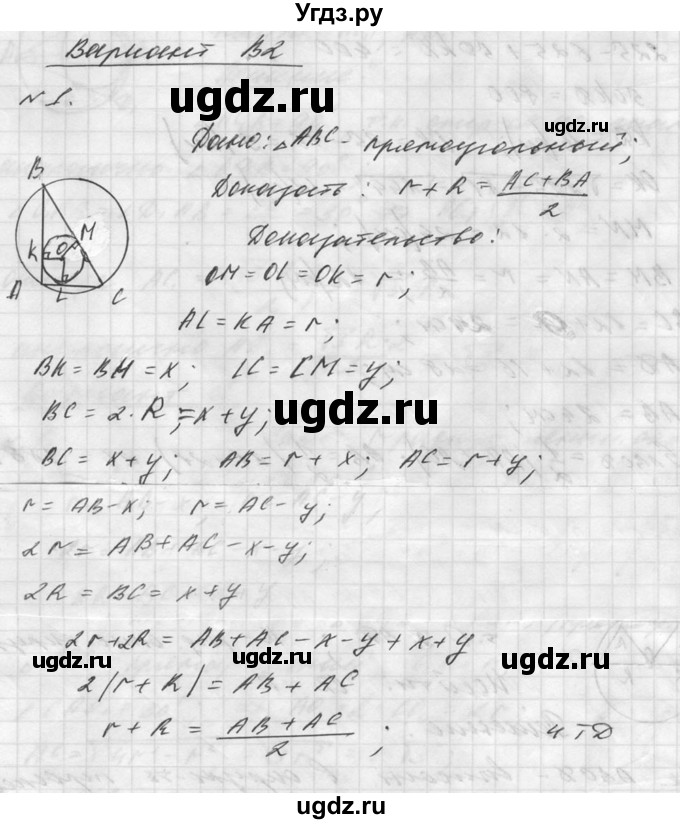 Угдз.ру
Вариант В2
№ 1.
ugdz.ru
ugdz.ru
Дано: △ABC - прямоугольный;
Доказать: r + R = AC+BA / 2
Доказательство:
B
K
O
M
A
L
C
OM = OL = OK = r;
AL = KA = r;
BK = BM = x; LC = CM = y;
BC = 2·R; = x + y;
ugdz.ru
BC = x + y; AB = r + x; AC = r + y;
r = AB - x; r = AC - y;
2r = AB + AC - x - y;
2R = BC = x + y
2r + 2R = AB + AC - x - y + x + y
ugdz.ru
ugdz.ru
ugdz.ru
2(r + R) = AB + AC
r + R = AB + AC / 2 ; ЧТД
ugdz.ru